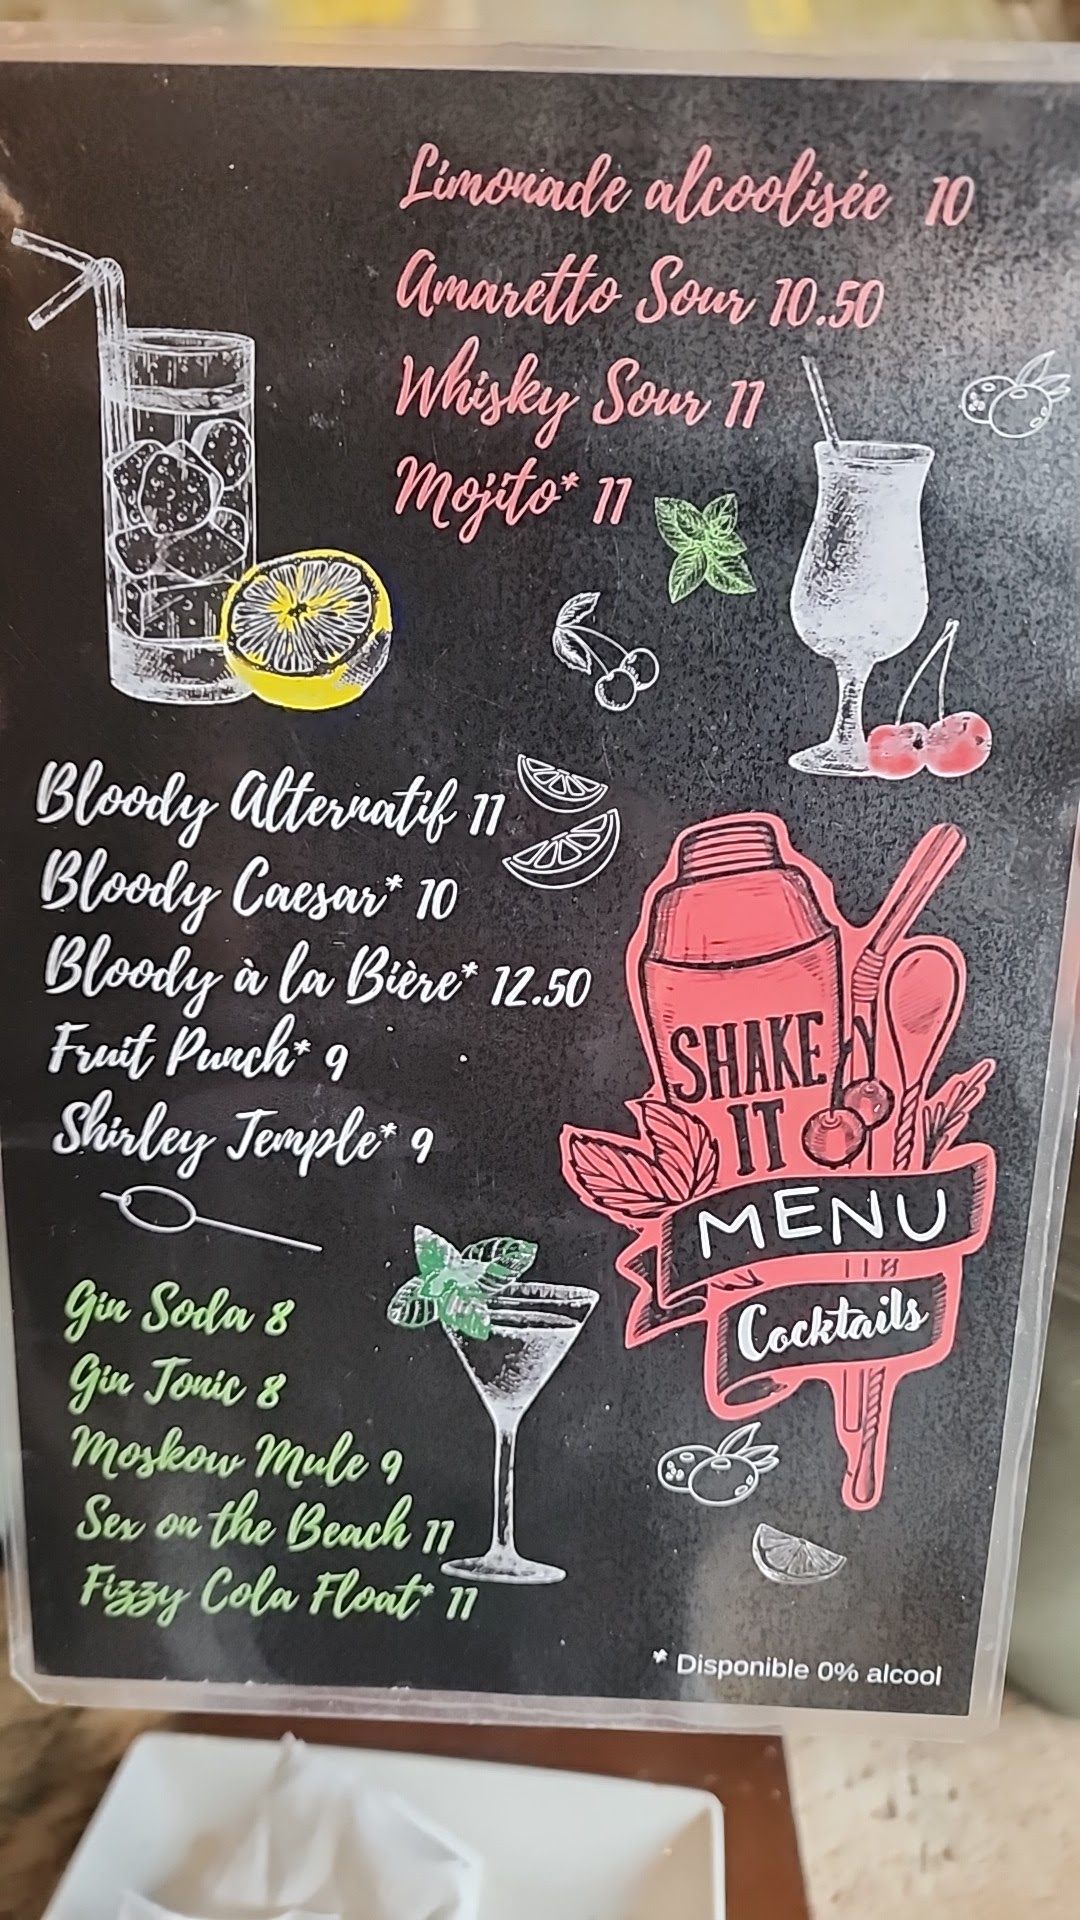 Limonade alcoolisée 10
Amaretto Sour 10.50
Whisky Sour 11
Mojito* 11
Bloody Alternatif 11
Bloody Caesar* 10
Bloody à la Bière* 12.50
Fruit Punch* 9
Shirley Temple* 9
SHAKE
IT
MENU
Cocktails
Gin Soda 8
Gin Tonic 8
Moskow Mule 9
Sex on the Beach 11
Fizzy Cola Float* 11
* Disponible 0% alcool